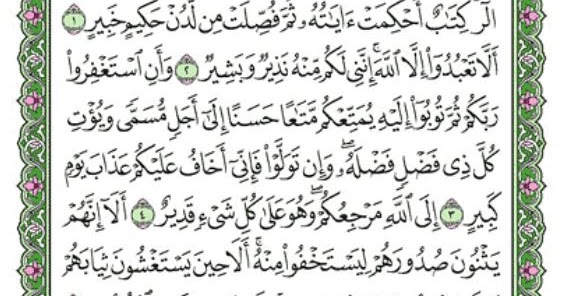 الٓر كِتَٰبٌ أُحْكِمَتْ ءَايَٰتُهُۥ ثُمَّ فُصِّلَتْ مِن لَّدُنْ حَكِيمٍ خَبِيرٍ ١
أَلَّا تَعْبُدُوٓا۟ إِلَّا ٱللَّهَ ۚ إِنَّنِى لَكُم مِّنْهُ نَذِيرٌ وَبَشِيرٌ ٢ وَأَنِ ٱسْتَغْفِرُوا۟
رَبَّكُمْ ثُمَّ تُوبُوٓا۟ إِلَيْهِ يُمَتِّعْكُم مَّتَٰعًا حَسَنًا إِلَىٰٓ أَجَلٍ مُّسَمًّى وَيُؤْتِ
كُلَّ ذِى فَضْلٍ فَضْلَهُۥ ۖ وَإِن تَوَلَّوْا۟ فَإِنِّىٓ أَخَافُ عَلَيْكُمْ عَذَابَ يَوْمٍ
كَبِيرٍ ٣ إِلَى ٱللَّهِ مَرْجِعُكُمْ ۖ وَهُوَ عَلَىٰ كُلِّ شَىْءٍ قَدِيرٌ ٤ أَلَآ إِنَّهُمْ
يَثْنُونَ صُدُورَهُمْ لِيَسْتَخْفُوا۟ مِنْهُ ۚ أَلَا حِينَ يَسْتَغْشُونَ ثِيَابَهُمْ